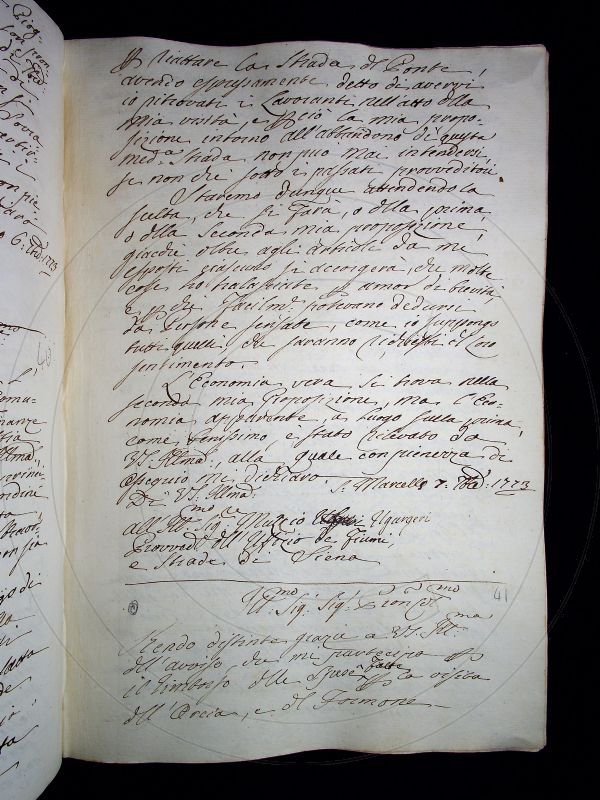 riattare la Strada del Ponte,
avendo espressamente detto di averci
io ritrovati i Lavoranti nell'atto della
mia visita, e perciò la mia propo-
sizione intorno all'abbandono di questa
med.ª Strada non può mai intendersi,
se non che sotto i passati Provveditori
Staremo dunque attendendo la
scelta, che si farà, o della prima
o della Seconda mia proposizione,
giacchè oltre agli articoli da me
esposti ciascuno si accorgerà, che molte
cose hò tralasciate p amor di brevità,
e p che facilm.te potevano dedursi
da Persone sensate, come io suppongo
tutti quelli, che saranno richiesti del loro
sentimento.
L'Economia vera si trova nella
seconda mia Proposizione, ma l'Eco-
nomia apparente à luogo sulla prima,
come benissimo è stato rilevato da
VS. Illma, alla quale con pienezza di
ossequio mi dichiaro. S. Marcello 7. 1773
Di VS. Illma.
all' Illmo Sig.re Muzio Ugurgeri
Provved.re dell'Ufizio de Fiumi,
e Strade di Siena
41
Ill.mo Sig. Sig. Pron Col.mo
Rendo distinte grazie a VS. Ill.ma
dell'avviso da mi partecipa
il rimborso delle Spese fatte p la visita
dell'Orcia, e del Formone